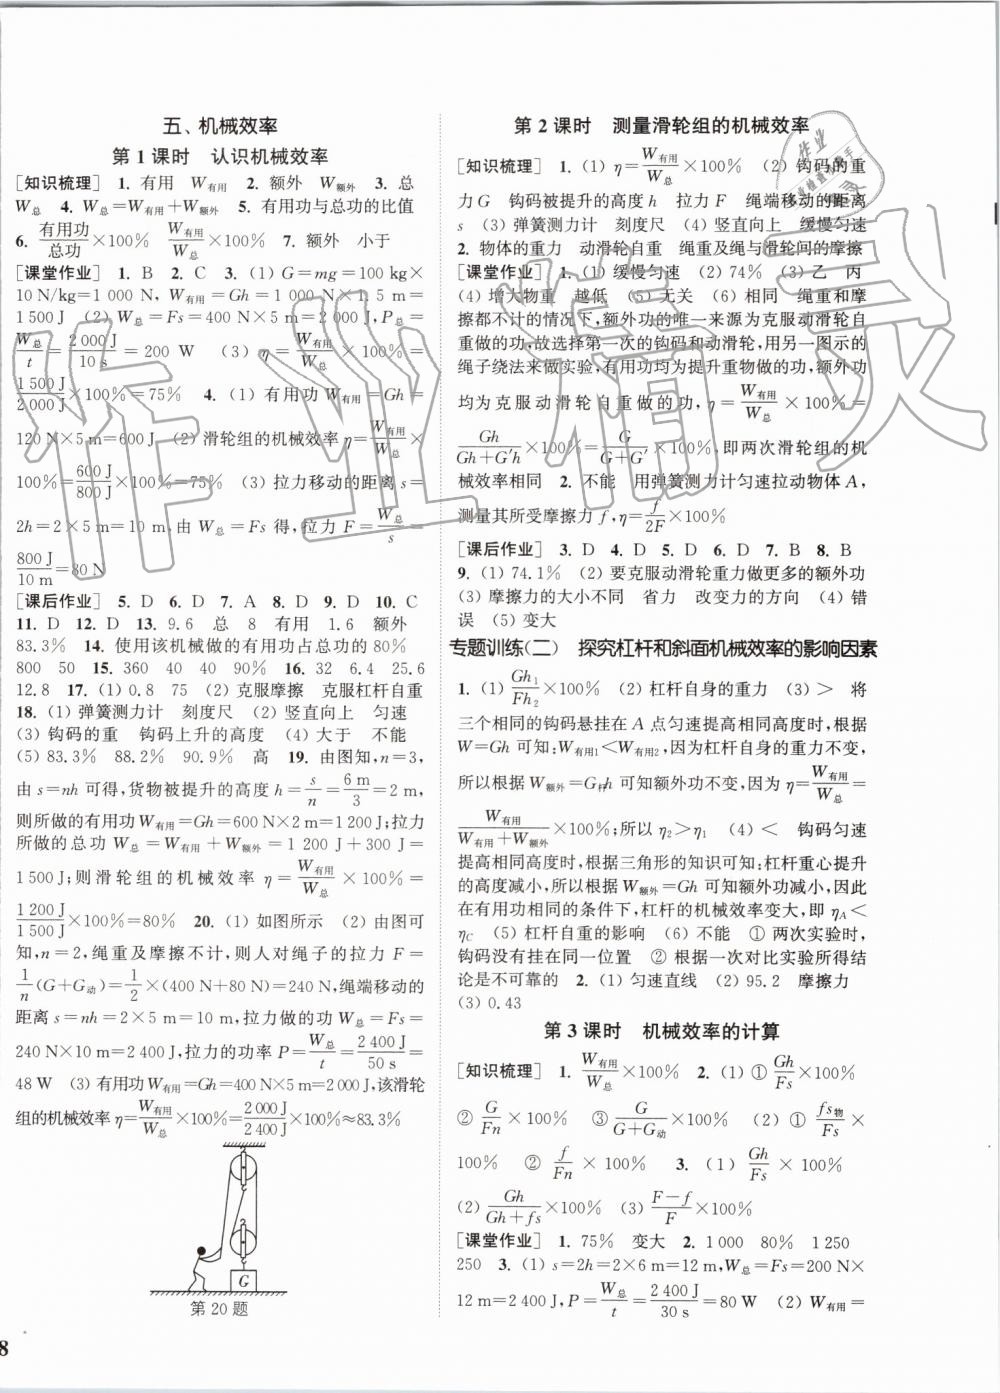 五、机械效率
第 1 课时　认识机械效率
[知识梳理]　1. 有用　W有用　2. 额外　W额外　3. 总
W总　4. W总=W有用+W额外　5. 有用功与总功的比值
6. 有用功/总功×100%　W有用/W总×100%　7. 额外　小于
[课堂作业]　1. B　2. C　3. (1) G=mg=100 kg×
10 N/kg=1 000 N, W有用=Gh=1 000 N×1.5 m=
1 500 J　(2) W总=Fs=400 N×5 m=2 000 J, P总=
W总/t=2 000 J/10 s=200 W　(3) η=W有用/W总×100%=
1 500 J/2 000 J×100%=75%　4. (1) 有用功 W有用=Gh=
120 N×5 m=600 J　(2) 滑轮组的机械效率 η=W有用/W总×
100%=600 J/800 J×100%=75%　(3) 拉力移动的距离 s=
2h=2×5 m=10 m,由 W总=Fs 得,拉力 F=W总/s=
800 J/10 m=80 N
[课后作业]　5. D　6. D　7. A　8. D　9. D　10. C
11. D　12. D　13. 9.6　总　8　有用　1.6　额外
83.3%　14. 使用该机械做的有用功占总功的 80%
800　50　15. 360　40　90%　16. 32　6.4　25.6
12.8　17. (1) 0.8　75　(2) 克服摩擦　克服杠杆自重
18. (1) 弹簧测力计　刻度尺　(2) 竖直向上　匀速
(3) 钩码的重　钩码上升的高度　(4) 大于　不能
(5) 83.3%　88.2%　90.9%　高　19. 由图知,n=3,
由 s=nh 可得,货物被提升的高度 h=s/n=6 m/3=2 m,
则所做的有用功 W有用=Gh=600 N×2 m=1 200 J;拉力
所做的总功 W总=W有用+W额外=1 200 J+300 J=
1 500 J;则滑轮组的机械效率 η=W有用/W总×100%=
1 200 J/1 500 J×100%=80%　20. (1) 如图所示　(2) 由图可
知,n=2,绳重及摩擦不计,则人对绳子的拉力 F=
1/n(G+G动)=1/2×(400 N+80 N)=240 N,绳端移动的
距离 s=nh=2×5 m=10 m,拉力做的功 W总=Fs=
240 N×10 m=2 400 J,拉力的功率 P=W总/t=2 400 J/50 s=
48 W　(3) 有用功 W有用=Gh=400 N×5 m=2 000 J,该滑轮
组的机械效率 η=W有用/W总×100%=2 000 J/2 400 J×100%≈83.3%
G
第 20 题
8
第 2 课时　测量滑轮组的机械效率
[知识梳理]　1. (1) η=W有用/W总×100%　(2) 钩码的重
力 G　钩码被提升的高度 h　拉力 F　绳端移动的距离
s　(3) 弹簧测力计　刻度尺　(4) 竖直向上　缓慢匀速
2. 物体的重力　动滑轮自重　绳重及绳与滑轮间的摩擦
[课堂作业]　1. (1) 缓慢匀速　(2) 74%　(3) 乙　丙
(4) 增大物重　越低　(5) 无关　(6) 相同　绳重和摩
擦都不计的情况下,额外功的唯一来源为克服动滑轮自
重做的功,故选择第一次的钩码和动滑轮,用另一图示的
绳子绕法来做实验,有用功均为提升重物做的功,额外功
均为克服动滑轮自重做的功,η=W有用/W总×100%=
Gh/(Gh+G′h)×100%=G/(G+G′)×100%,即两次滑轮组的机
械效率相同　2. 不能　用弹簧测力计匀速拉动物体 A,
测量其所受摩擦力 f,η=f/2F×100%
[课后作业]　3. D　4. D　5. D　6. D　7. B　8. B
9. (1) 74.1%　(2) 要克服动滑轮重力做更多的额外功
(3) 摩擦力的大小不同　省力　改变力的方向　(4) 错
误　(5) 变大
专题训练(二)　探究杠杆和斜面机械效率的影响因素
1. (1) Gh₁/Fh₂×100%　(2) 杠杆自身的重力　(3) >　将
三个相同的钩码悬挂在 A 点匀速提高相同高度时,根据
W=Gh 可知:W有用1<W有用2,因为杠杆自身的重力不变,
所以根据 W额外=G杆h 可知额外功不变,因为 η=W有用/W总=
W有用/(W有用+W额外)×100%;所以 η₂>η₁　(4) <　钩码匀速
提高相同高度时,根据三角形的知识可知:杠杆重心提升
的高度减小,所以根据 W额外=Gh 可知额外功减小,因此
在有用功相同的条件下,杠杆的机械效率变大,即 ηA<
ηC　(5) 杠杆自重的影响　(6) 不能　① 两次实验时,
钩码没有挂在同一位置　② 根据一次对比实验所得结
论是不可靠的　2. (1) 匀速直线　(2) 95.2　摩擦力
(3) 0.43
第 3 课时　机械效率的计算
[知识梳理]　1. W有用/W总×100%　2. (1) ① Gh/Fs×100%
② G/Fn×100%　③ G/(G+G动)×100%　(2) ① fs物/Fs×
100%　② f/Fn×100%　3. (1) Gh/Fs×100%
(2) Gh/(Gh+fs)×100%　(3) (F−f)/F×100%
[课堂作业]　1. 75%　变大　2. 1 000　80%　1 250
250　3. (1) s=2h=2×6 m=12 m, W总=Fs=200 N×
12 m=2 400 J, P=W总/t=2 400 J/30 s=80 W　(2) W有用=
作业精灵